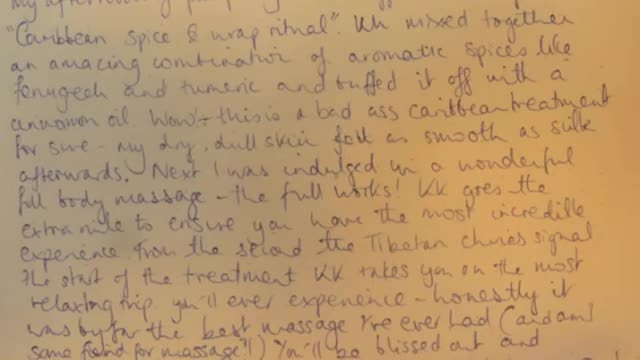 "Caribbean spice & wrap ritual". KK mixed together
an amazing combination of aromatic spices like
fenugeek and tumeric and buffed it off with a
cinnamon oil. Wow! - this is a bad ass caribbean treatment
for sure - my dry, dull skin felt as smooth as silk
afterwards. Next I was indulged in a wonderful
full body massage - the full works! KK goes the
extra mile to ensure you have the most incredible
experience. From the second the Tibetan chimes signal
the start of the treatment KK takes you on the most
relaxing trip you'll ever experience - honestly it
was by far the best massage I've ever had (and am
some for massage!!) You'll be blissed out and